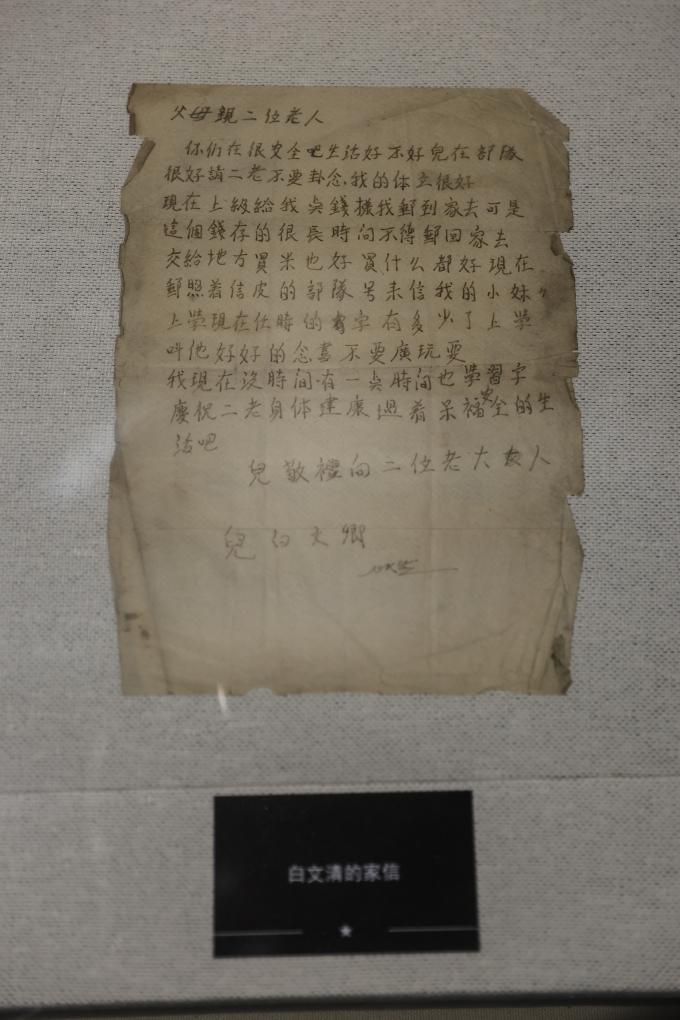 父母親二位老人
你们在很安全吧生活好不好兒在部隊
很好請二老不要卦念我的体立很好
現在上級給我点錢樣我郵到家去可是
這個錢存的很長時间不得郵回家去
交給地方買米也好買什么都好現在
郵照着信皮的部隊号来信我的小妹
上學現在仕時的字有多少了上學
叫他好好的念書不要廣玩耍
我現在沒時间有一点時间也學習字
慶祝二老身体建康過着福安全的生
活吧
兒敬禮向二位老大人
兒白文卿
白文清的家信